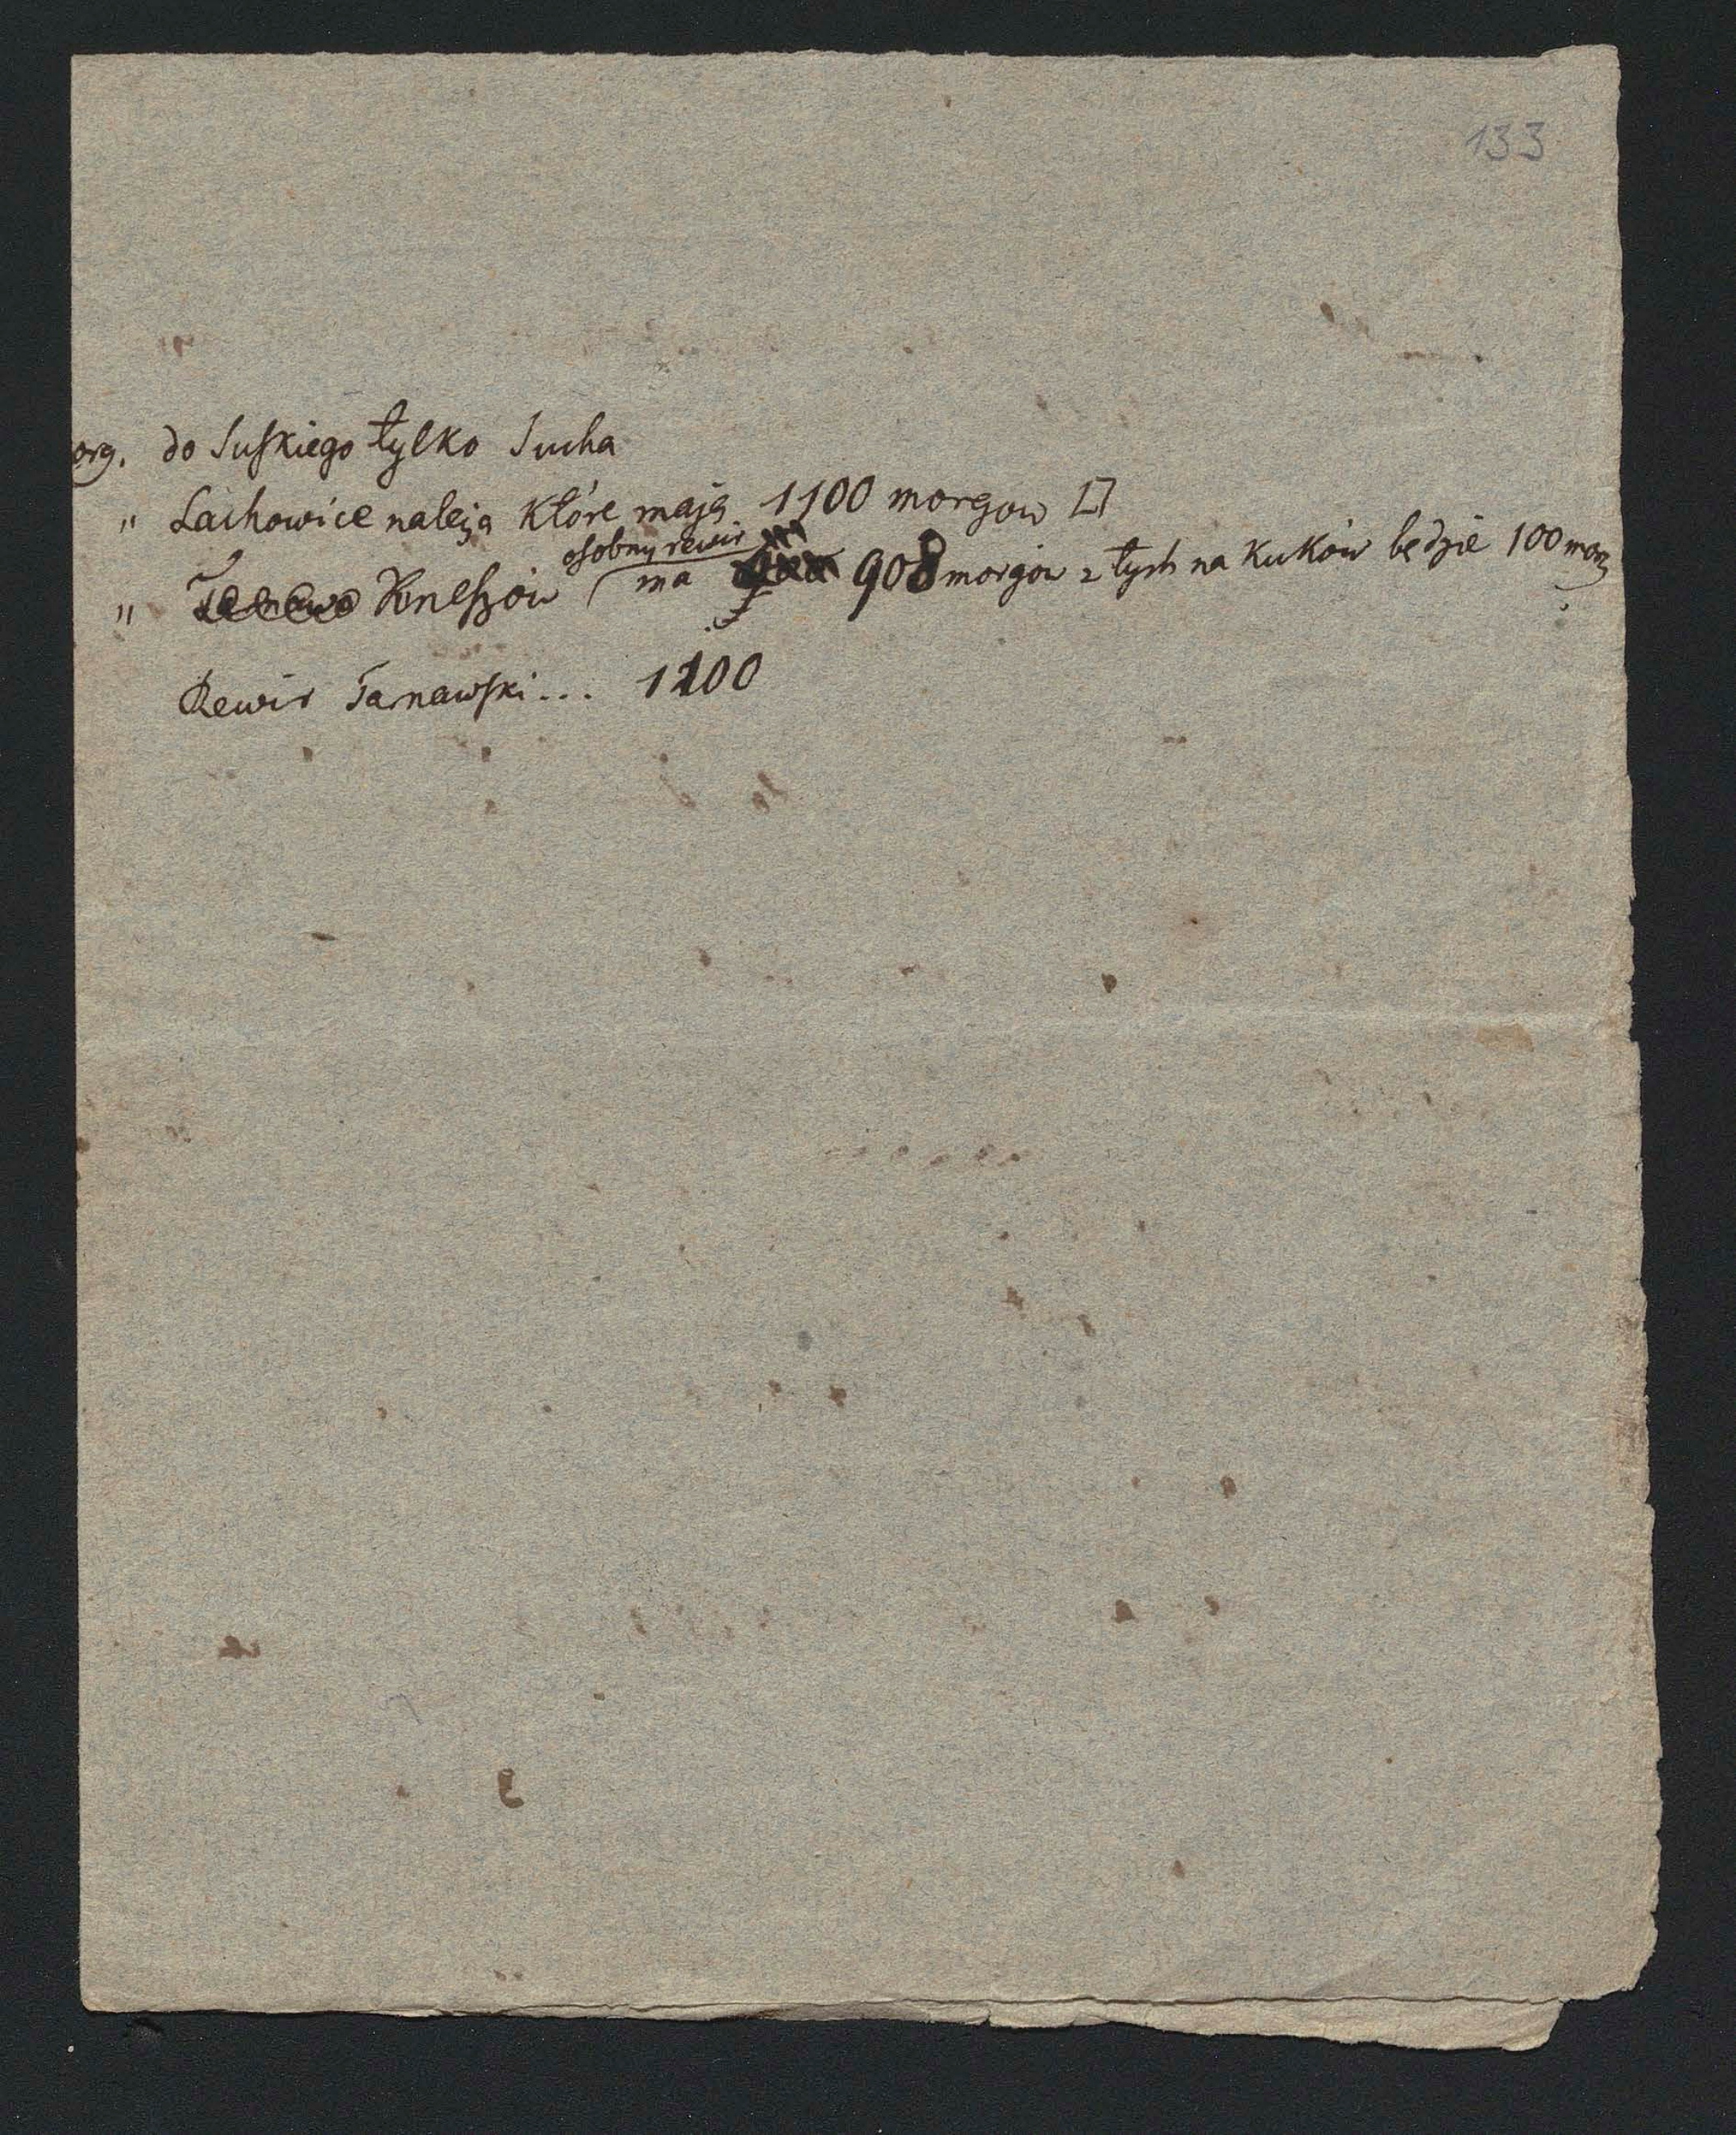 133
org. do Suskiego tylko Sucha
" Lachowice należą które mają 1100 morgow □
osobny rewir
" Kneszów ma 908 morgow z tych na Kuków będzie 100 morg
Rewir Tarnawski... 1200